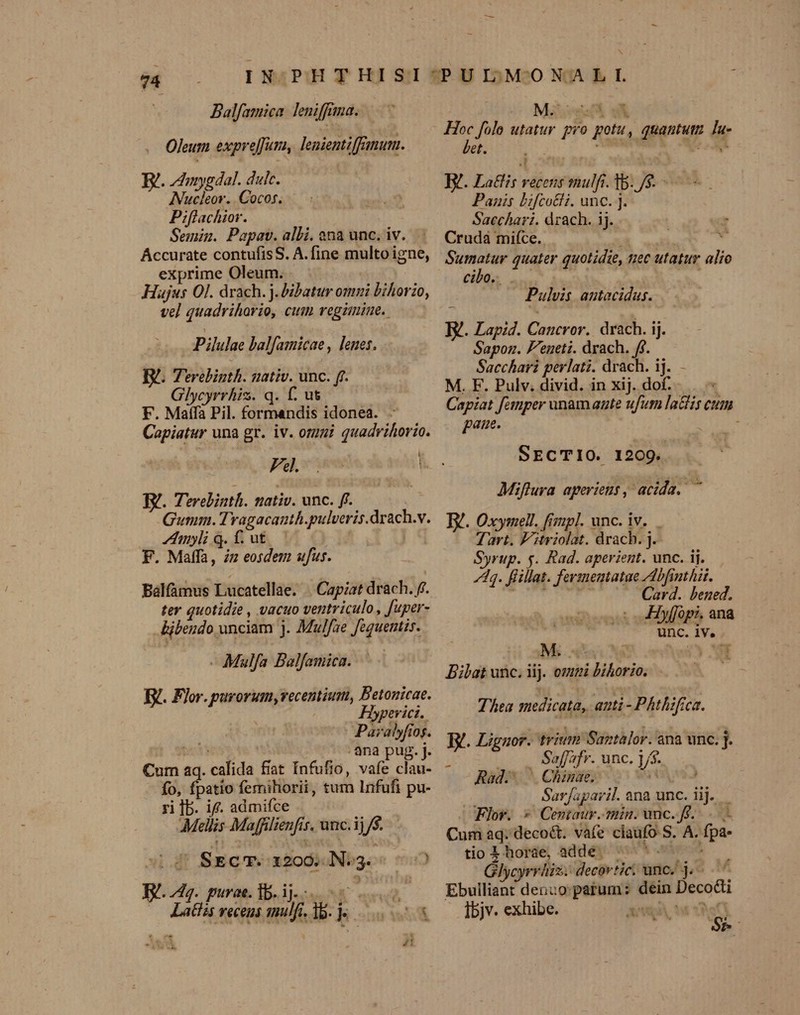 74 IN PHTHISI PULMONALI.
Balſamica leniſſima.
Oleum expreſſum, lenientiſſimum.
℞. Amygdal. dulc.
Nucleor. Cocos.
Piſtachior.
Semin. Papav. albi. ana unc. iv.
Accurate contuſis S. A. ſine multo igne,
exprime Oleum.
Hujus Ol. drach. j. bibatur omni bihorio,
vel quadrihorio, cum regimine.
Pilulae balſamicae, lenes.
℞. Terebinth. nativ. unc. ſſ.
Glycyrrhiz. q. ſ. ut
F. Maſſa Pil. formandis idonea.
Capiatur una gr. iv. omni quadrihorio.
Vel.
℞. Terebinth. nativ. unc. ſſ.
Gumm. Tragacanth. pulveris. drach. v.
Amyli q. ſ. ut
F. Maſſa, in eosdem uſus.
Balſamus Lucatellae. Capiat drach. ſſ.
ter quotidie, vacuo ventriculo, ſuper-
bibendo unciam j. Mulſae ſequentis.
Mulſa Balſamica.
℞. Flor. purorum, recentium, Betonicae.
Hyperici.
Paralyſios.
ana pug. j.
Cum aq. calida fiat Infuſio, vaſe clau-
ſo, ſpatio ſemihorii, tum Infuſi pu-
ri ℔. iſſ. admiſce
Mellis Maſſilienſis. unc. ij ſſ.
SECT. 1200. N. 3.
℞. Aq. purae. ℔. ij.
Lactis recens mulſi. ℔. j.
M.
Hoc ſolo utatur pro potu, quantum lu-
bet.
℞. Lactis recens mulſi. ℔. ſſ.
Panis biſcocti. unc. j.
Sacchari. drach. ij.
Cruda miſce.
Sumatur quater quotidie, nec utatur alio
cibo.
Pulvis antacidus.
℞. Lapid. Cancror. drach. ij.
Sapon. Veneti. drach. ſſ.
Sacchari perlati. drach. ij.
M. F. Pulv. divid. in xij. doſ.
Capiat ſemper unam ante uſum lactis cum
pane.
SECTIO. 1209.
Miſtura aperiens, acida.
℞. Oxymell. ſimpl. unc. iv.
Tart. Vitriolat. drach. j.
Syrup. 5. Rad. aperient. unc. ij.
Aq. ſtillat. fermentatae Abſinthii.
Card. bened.
Hyſſopi, ana
unc. iv.
M.
Bibat unc. iij. omni bihorio.
Thea medicata, anti-Phthiſica.
℞. Lignor. trium Santalor. ana unc. j.
Saſſafr. unc. j ſſ.
Rad. Chinae.
Sarſaparil. ana unc. iij.
Flor. Centaur. min. unc. ſſ.
Cum aq. decoct. vaſe clauſo S. A. ſpa-
tio ½ horae, adde
Glycyrrhiz. decortic. unc. j.
Ebulliant denuo parum: dein Decocti
℔jv. exhibe.